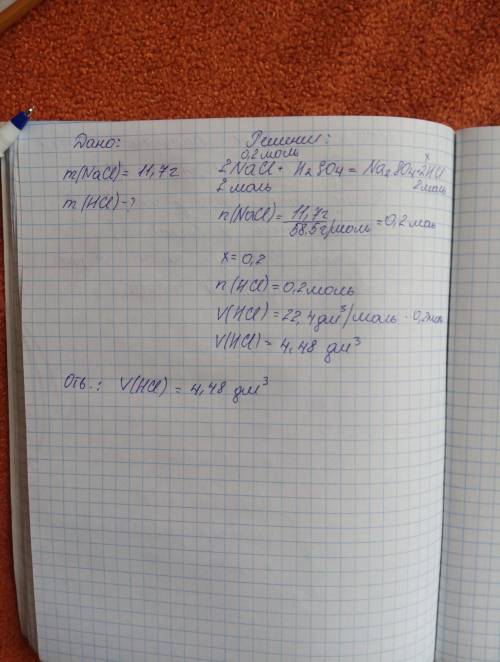 Дано:
Решение:
0,2 моль
x
m(NaCl) = 11,7г
2NaCl + H₂SO₄ = Na₂SO₄ + 2HCl
2 моль
2 моль
m(HCl) - ?
n(NaCl) = 11,7г / 58.5г/моль = 0,2 моль
x = 0,2
n(HCl) = 0,2 моль
V(HCl) = 22,4 дм³/моль · 0,2моль
V(HCl) = 4,48 дм³
Отв.: V(HCl) = 4,48 дм³